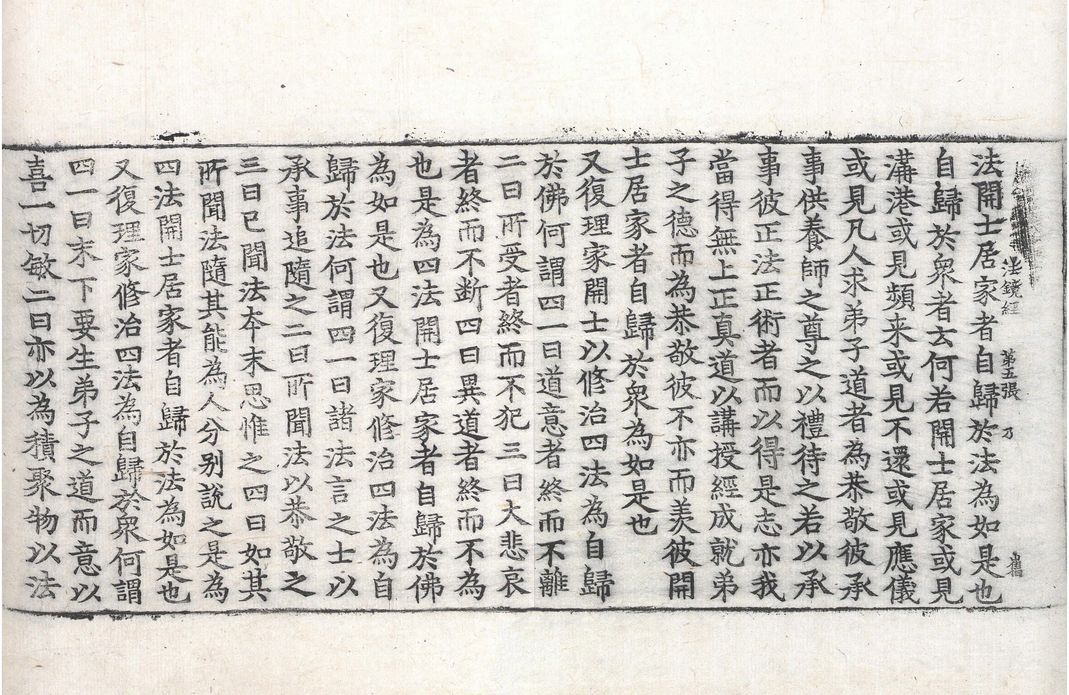 法鏡經 第五張 乃
法開士居家者自歸於法為如是也
自歸於衆者云何若開士居家或見
溝港或見頻来或見不還或見應儀
或見凡人求弟子道者為恭敬彼承
事供養師之尊之以禮待之若以承
事彼正法正術者而以得是志亦我
當得無上正真道以講授經成就弟
子之德而為恭敬彼不亦而羨彼開
士居家者自歸於衆為如是也
又復理家開士以修治四法為自歸
於佛何謂四一曰道意者終而不離
二曰所受者終而不犯三曰大悲哀
者終而不断四曰異道者終而不為
也是為四法開士居家者自歸於佛
為如是也又復理家修治四法為自
歸於法何謂四一曰諸法言之士以
承事追隨之二曰所聞法以恭敬之
三曰已聞法夲末思惟之四曰如其
所聞法隨其能為人分别說之是為
四法開士居家者自歸於法為如是也
又復理家修治四法為自歸於衆何謂
四一曰末下要生弟子之道而意以
喜一切敏二曰亦以為積聚物以法